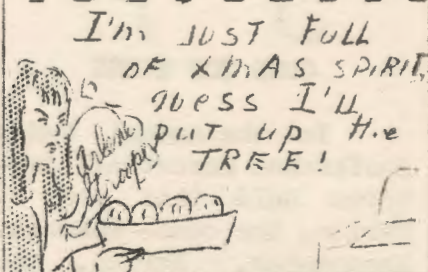 I'm JUST FULL
OF XMAS SPIRIT,
guess I'll
PUT UP the
TREE!
Arlene